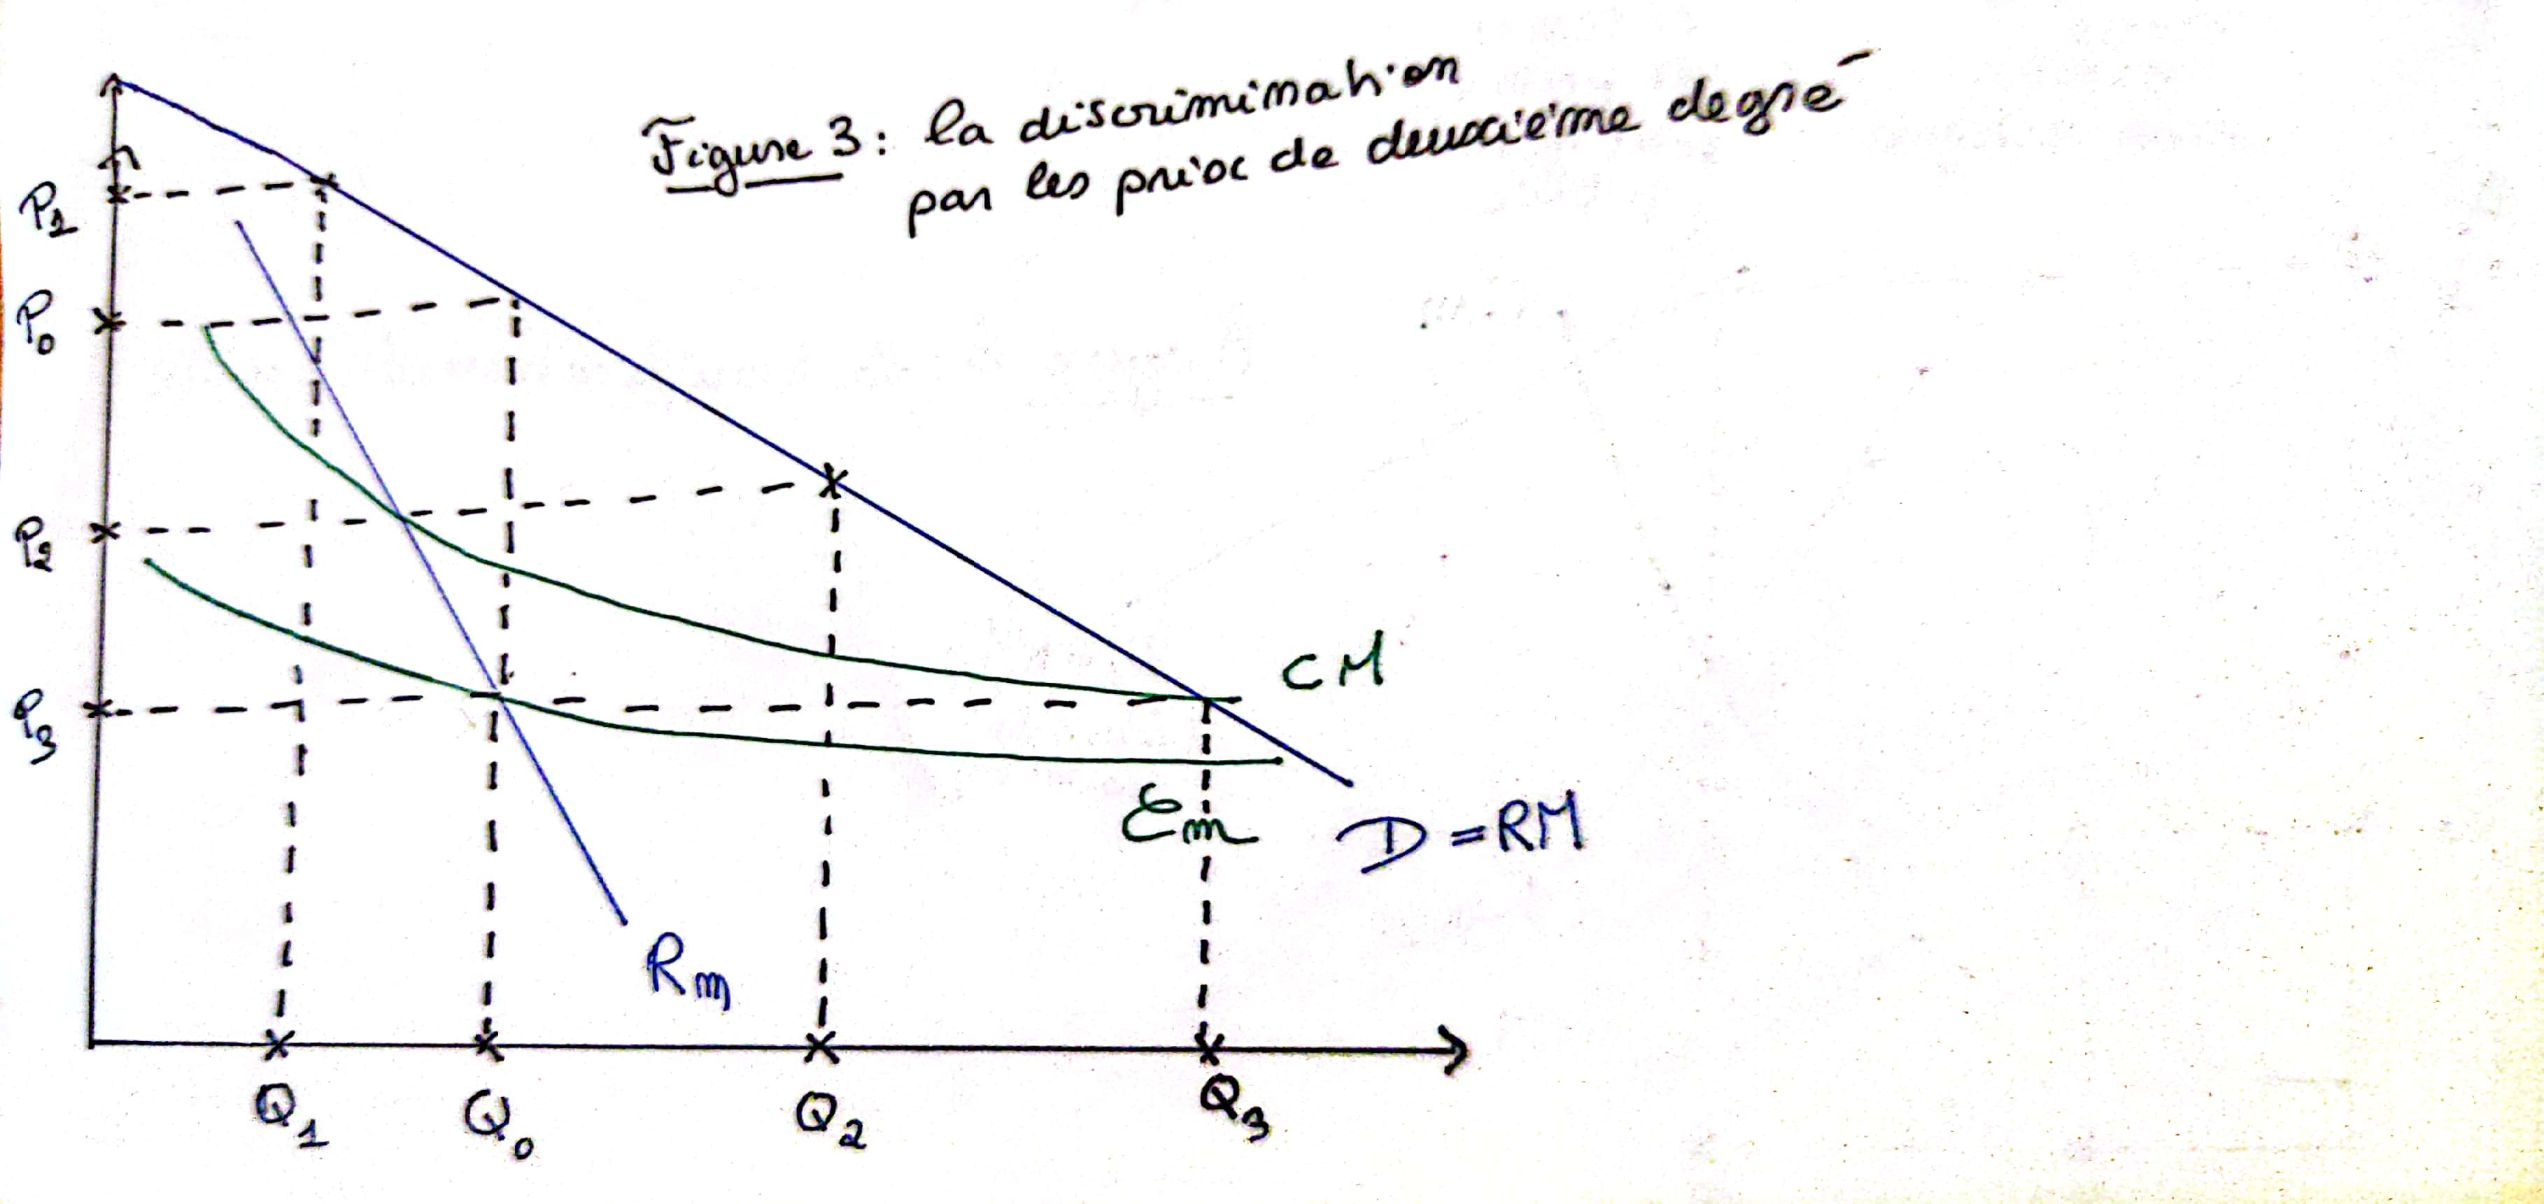 Figure 3 : la discrimination
par les prix de deuxième degré
P1
P0
P2
P3
CM
Cm
D = RM
Rm
Q1 Q0 Q2 Q3